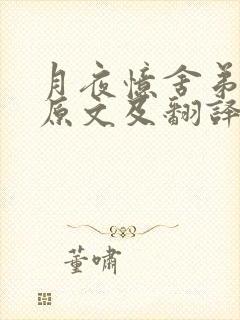 月夜憶舍弟
原文及翻譯
董嘯